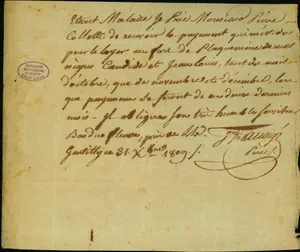 Etant Malade Je Prie Monsieur Pierre
Collette de recevoir le payement qui m'est du
pour le loyer au fort de Plaquemine de mes
négres Candide et Jean Louis, tant du mois
d'octobre, que de novembre et décembre, lors
que payemens se feront de ces deux derniers
mois - il obligera son tres humble serviteur
Bas du fleuve, pris de
Gentilly ce 31 Xbre 1809 /.